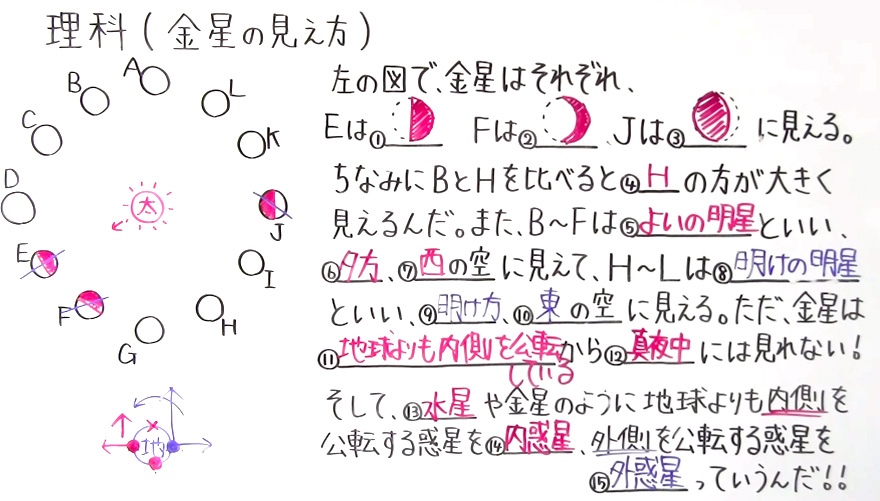 理科(金星の見え方)
A
B
C
D
E
F
G
H
I
J
K
L
太
地
左の図で、金星はそれぞれ、
Eは① Fは② 、Jは③ に見える。
ちなみにBとHを比べると④Hの方が大きく
見えるんだ。また、B~Fは⑤よいの明星といい、
⑥夕方、⑦西の空に見えて、H~Lは⑧明けの明星
といい、⑨明け方、⑩東の空に見える。ただ、金星は
⑪地球よりも内側を公転しているから⑫真夜中には見れない!
そして、⑬水星や金星のように地球よりも内側を
公転する惑星を⑭内惑星、外側を公転する惑星を
⑮外惑星っていうんだ!!